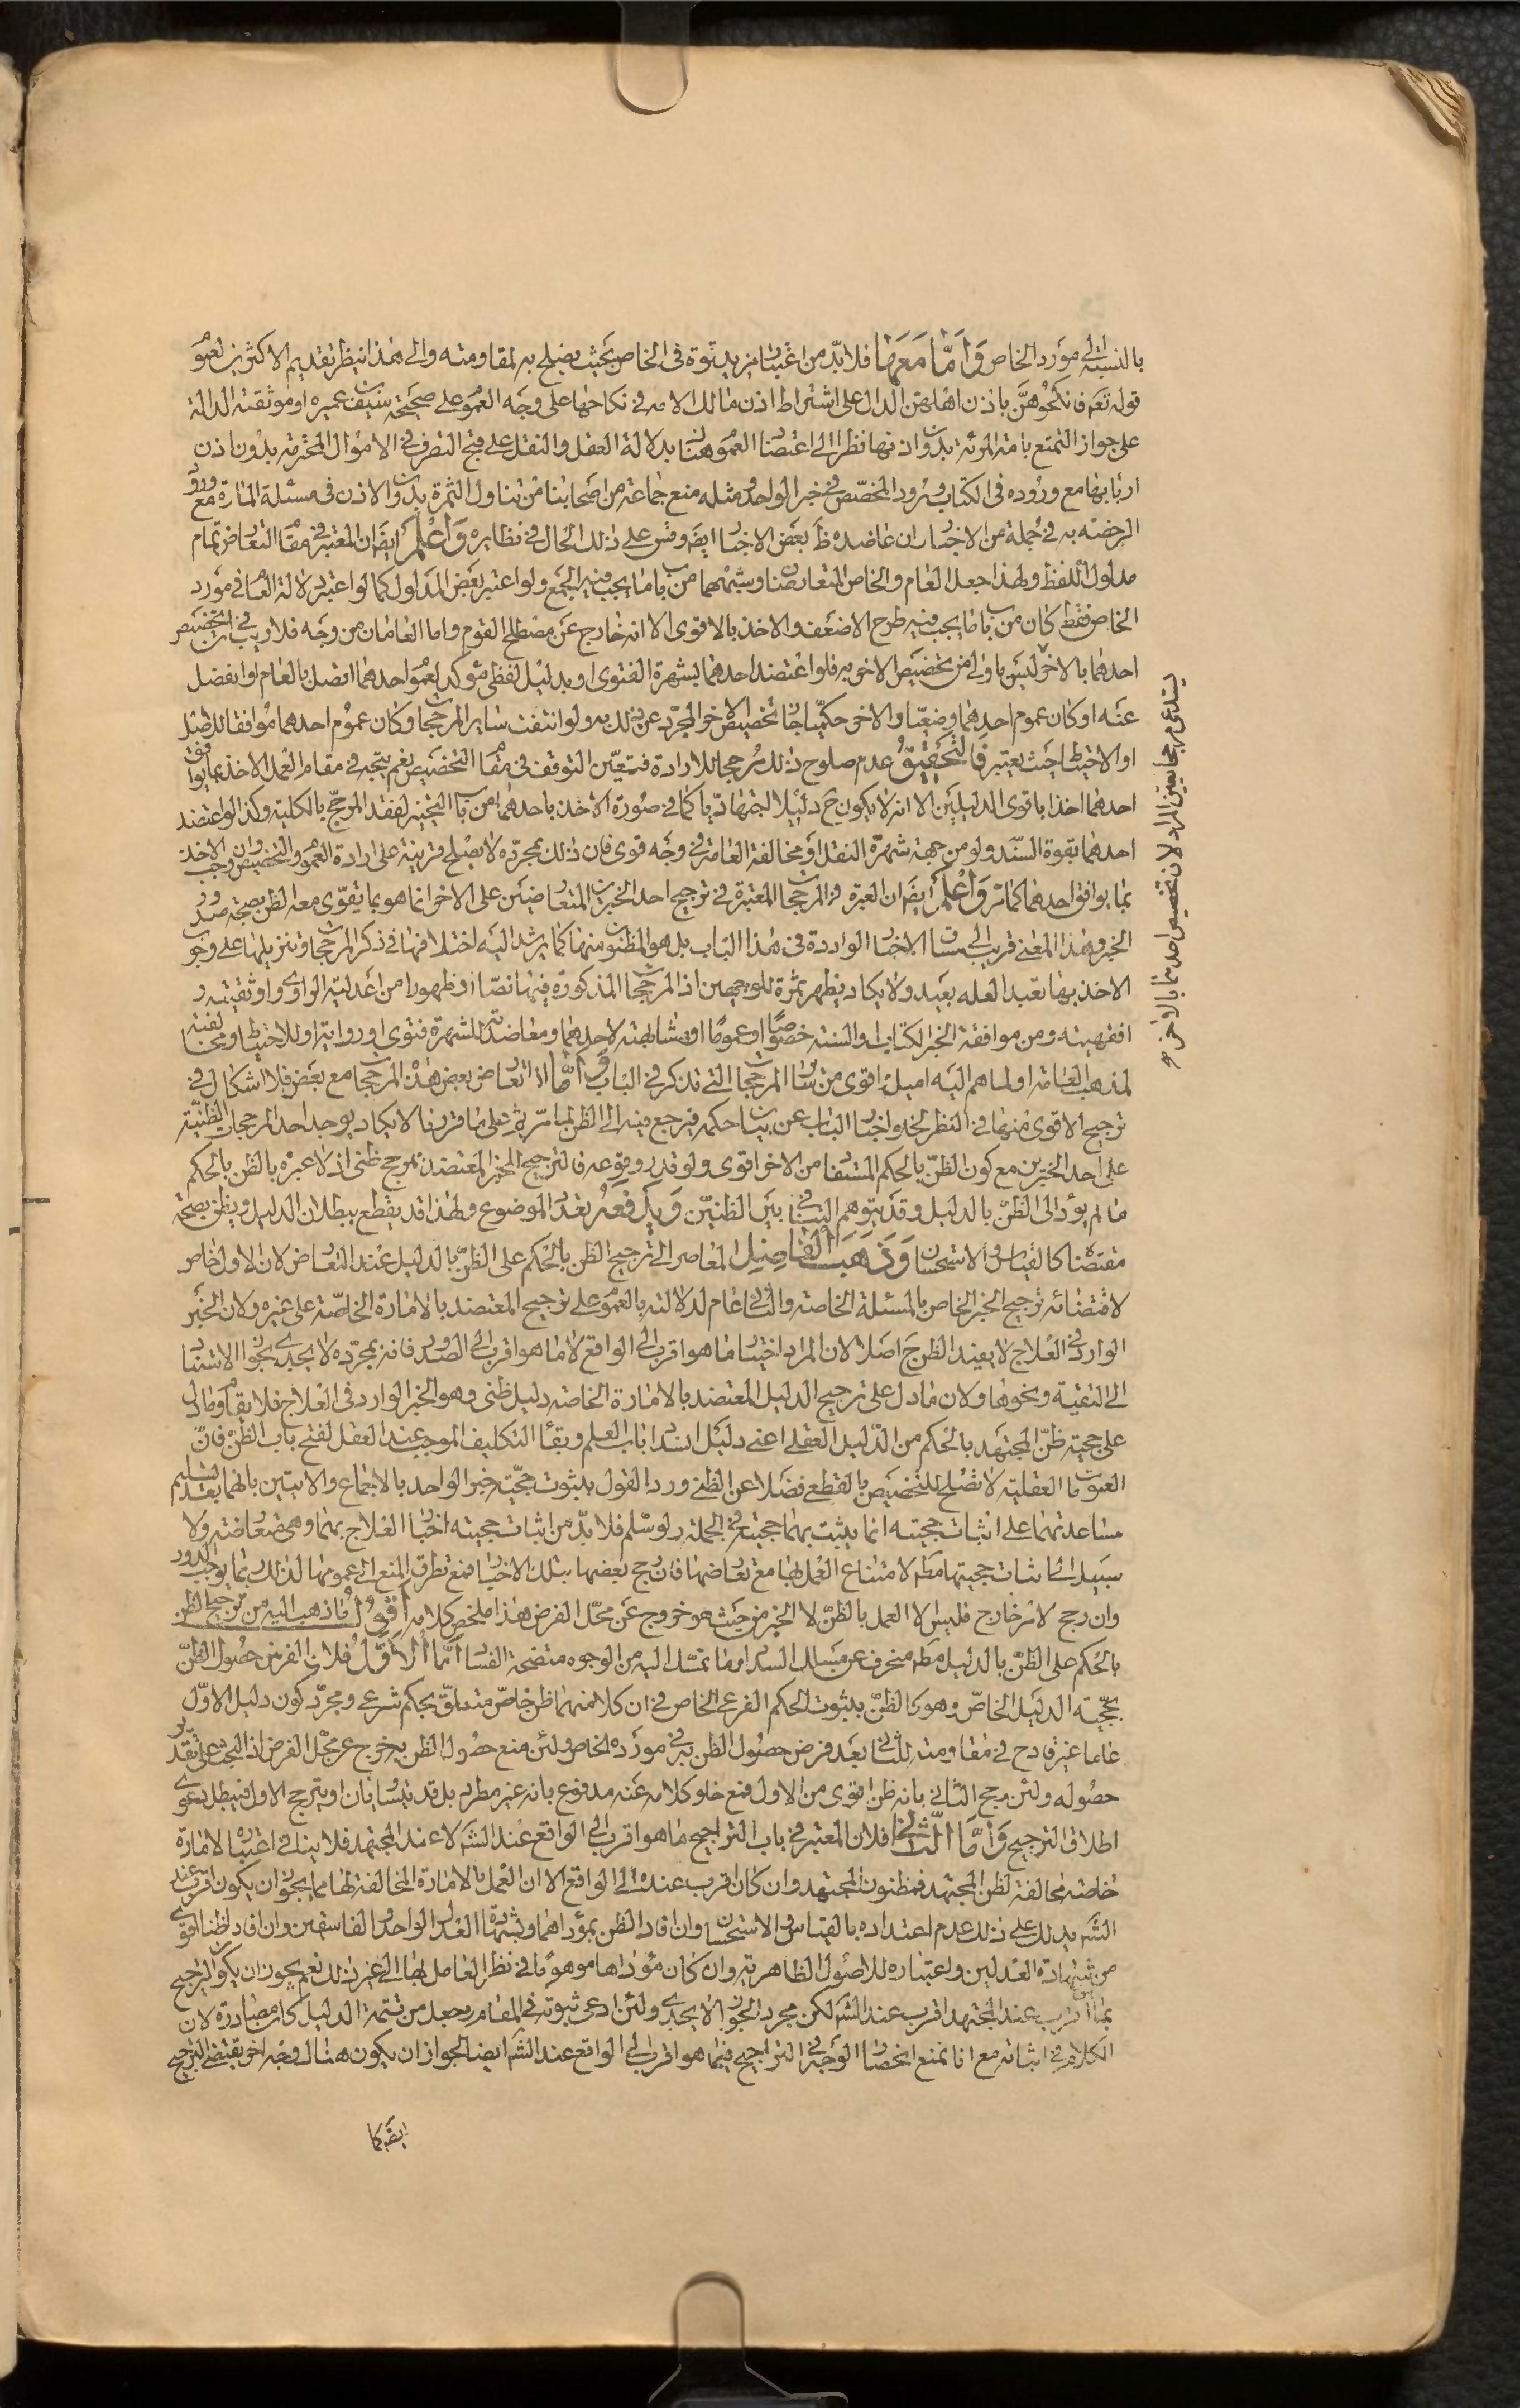 بالنسبة الى مورد الخاص وَاَمّا مَعَها فلا بدّ من اعتبار مزيد قوة فى الخاص بحيث يصلح به لمقاومته والى هذا ينظر تقديم الاكثرين لعموم
قوله تعه فانكحوهنّ باذن اهلهن الدال على اشتراط اذن مالك الامه فى نكاحها على وجه العموم على صحيحة سيف بن عميره او موثقته الدالة
على جواز التمتع بامة المرئة بدون اذنها نظرا الى اعتضاد العموم هنا بدلالة العقل والنقل على قبح التصرف فى الاموال المحترمة بدون اذن
اربابها مع وروده فى الكتاب وورود المخصّص فى خبر الواحد ومثله منع جماعة من اصحابنا من تناول الثمرة بدون الاذن فى مسئلة المارة مع ورود
الرخصة به فى جملة من الاخبار ان عاضده ظ بعض الاخبار ايضا وقس على ذلك الحال فى نظايره وَاعْلَم ايضا ان المعتبر فى مقام التعارض تمام
مدلول اللفظ ولهذا جعل العام والخاص المتعارضان وشبههما من باب ما يجب فيه الجمع ولو اعتبر بعض المدلول كما لو اعتبر دلالة العام فى مورد
الخاص فقط كان من باب ما يجب فيه طرح الاضعف والاخذ بالاقوى الا انه خارج عن مصطلح القوم واما العامان من وجه فلا ريب فى ان تخصيص
احدهما بالاخر ليس باولى من تخصيص الاخر به فلو اعتضد احدهما بشهرة الفتوى او بدليل لفظى مؤكد لعموم احدهما اتصل بالعام او انفصل
عنه او كان عموم احدهما وضعيّا والاخر حكميّا جاز تخصيص الاخر المجرّد عن ذلك به ولو انتفت ساير المرجحات وكان عموم احدهما موافقا للاصل
او الاحتياط حيث يعتبر فالتحقيق عدم صلوح ذلك مرجحا للارادة فتعيّن التوقف فى مقام التخصيص نعم يتجه فى مقام العمل الاخذ بما يوافق
احدهما اخذا باقوى الدليلين الا انه لا يكون ح دليلا اجتهاديّا كما فى صورة الاخذ باحدهما من باب التخيير لفقد المرجّح بالكلية وكذا لو اعتضد
احدهما بقوة السند ولو من جهة شهرة النقل او مخالفة العامة فى وجه قوى فان ذلك بمجرّده لا يصلح قرينة على ارادة العموم والتخصيص وان وجب الاخذ
بما يوافق احدهما كما مرّ وَاعْلَم ايضا ان العبرة فى المرجحات المعتبرة فى ترجيح احد الخبرين المتعارضين على الاخر انما هو بما يتقوّى معه الظن بصحة صدور
الخبر وهذا المعنى قريب الى مساق الاخبار الواردة فى هذا الباب بل هو المظنون منها كما يرشد اليه اختلافها فى ذكر المرجحات وتنزيلها على وجوب
الاخذ بها تعبد العله بعيد ولا يكاد يظهر ثمرة للوجهين اذ المرجحات المذكورة فيها نصّا او ظهورا من اعدلية الراوى واوثقيته و
افقهيته ومن موافقة الخبر لكتاب والسنة خصوصا او عموما او مشابهته لاحدهما ومعاضدته للشهرة فتوى او رواية او للاحتياط ومخالفته
لمذهب العامة او لما هم اليه اميل اقوى من ساير المرجحات التى تذكر فى الباب وَاَمّا اذا تعارض بعض هذه المرجحات مع بعض فلا اشكال فى
ترجيح الاقوى منهما فى النظر لخلو اخبار الباب عن بيان حكمه فيرجع فيه الى الظن لما مرّ ثم على ما قررنا لا يكاد يوجد احد المرجحات الظنيّة
على احد الخبرين مع كون الظنّ بالحكم المستفاد من الاخر اقوى ولو قدر وقوعه فالترجيح للخبر المعتضد بمرجح ظنى اذ لا عبرة بالظن بالحكم
ما لم يؤد الى الظنّ بالدليل وقد يتوهم التنافى بين الظنيّن وَيدفعه تعدد الموضوع ولهذا قد يقطع ببطلان الدليل ويظن بصحة
مقتضاه كالقياس والاستحسان وَذهب الفاضل المعاصر الى ترجيح الظن بالحكم على الظنّ بالدليل عند التعارض لان الاول خاص
لاقتضائه ترجيح الخبر الخاص بالمسئلة الخاصة والثانى عام لدلالته بالعموم على ترجيح المعتضد بالامارة الخاصّة على غيره ولان الخبر
الوارد فى العلاج لا يفيد الظن ح اصلا لان المراد اختيار ما هو اقرب الى الواقع لا ما هو اقرب الى الصدور فانه بمجرّده لا يجدى لجواز الاستناد
الى التقية ونحوها ولان ما دل على ترجيح الدليل المعتضد بالامارة الخاصة دليل ظنى وهو الخبر الوارد فى العلاج فلا يقاوم ما دل
على حجية ظنّ المجتهد بالحكم من الدّليل العقلى اعنى دليل انسداد باب العلم وبقاء التكليف الموجب عند العقل لفتح باب الظنّ فانّ
العمومات العقلية لا تصلح للتخصيص بالقطعى فضلا عن الظنى ورد القول بثبوت حجّية خبر الواحد بالاجماع والايتين بانهما بعد تسليم
مساعدتهما على اثبات حجيته انما يثبت بهما حجيته فى الجملة ولو سلم فلا بدّ من اثبات حجية اخبار العلاج بهما وهى متعارضة ولا
سبيل الى اثبات حجيتها مطه لامتناع العمل بها مع تعارضها فان رجح بعضها بتلك الاخبار فمع تطرق المنع الى عمومها لذلك ربما يوجب الدور
وان رجح لامر خارج فليس الا العمل بالظنّ لا الخبر من حيث هو خروج عن محلّ الفرض هذا ملخص كلامه اقول ما ذهب اليه من ترجيح الظن
بالحكم على الظنّ بالدليل مطه منحرف عن مسالك السداد وما تمسّك اليه من الوجوه متضحة الفساد اَمّا الاَوّل فلان الفرض حصول الظنّ
بحجّية الدليل الخاصّ وهو كالظنّ بثبوت الحكم الفرعى الخاص فى ان كلا منهما ظن خاصّ متعلقّ بحكم شرعى ومجرّد كون دليل الاوّل
عاما غير قادح فى مقاومته للثانى بعد فرض حصول الظن به فى مورده الخاص ولئن منع حصول الظن به خرج عن محل الفرض اذ البحث على تقدير
حصوله ولئن رجح الثانى بانه ظن اقوى من الاول فمع خلو كلامه عنه مدفوع بانه غير مطرد بل قد يتساويان او يترجح الاول فيبطل دعوى
اطلاق الترجيح وَاَمّا الثّانى فلان المعتبر فى باب التراجيح ما هو اقرب الى الواقع عند الشه لا عند المجتهد فلا ينافى اعتبار الامارة
خاصة مخالفة لظن المجتهد فمظنون المجتهد وان كان اقرب عنده الى الواقع الا ان العمل بالامارة المخالفة لها مما يجوز ان يكون اقرب عند
الشه يدلك على ذلك عدم اعتداده بالقياس والاستحسان وان افاد الظن بمؤداهما وشهادة العدل الواحد والفاسقين وان افاد ظنا اقوى
من شهادة العدلين واعتباره للاصول الظاهرية وان كان مؤداها موهوما فى نظر العامل بها الى غير ذلك نعم يجوز ان يكون الترجيح
بما اقرب عند المجتهد اقرب عند الشه لكن مجرد الجواز لا يجدى ولئن ادعى ثبوته فى المقام وجعل من تتمة الدليل كان مصادرة لان
الكلام فى اثباته مع انا نمنع انحصار الوجه فى التراجيح فيما هو اقرب الى الواقع عند الشه ايضا لجواز ان يكون هناك وجه اخر يقتضى الترجيح
ايضه كما
يستدعى مرجحا يعين المراد لان تخصيص احدهما بالاخر